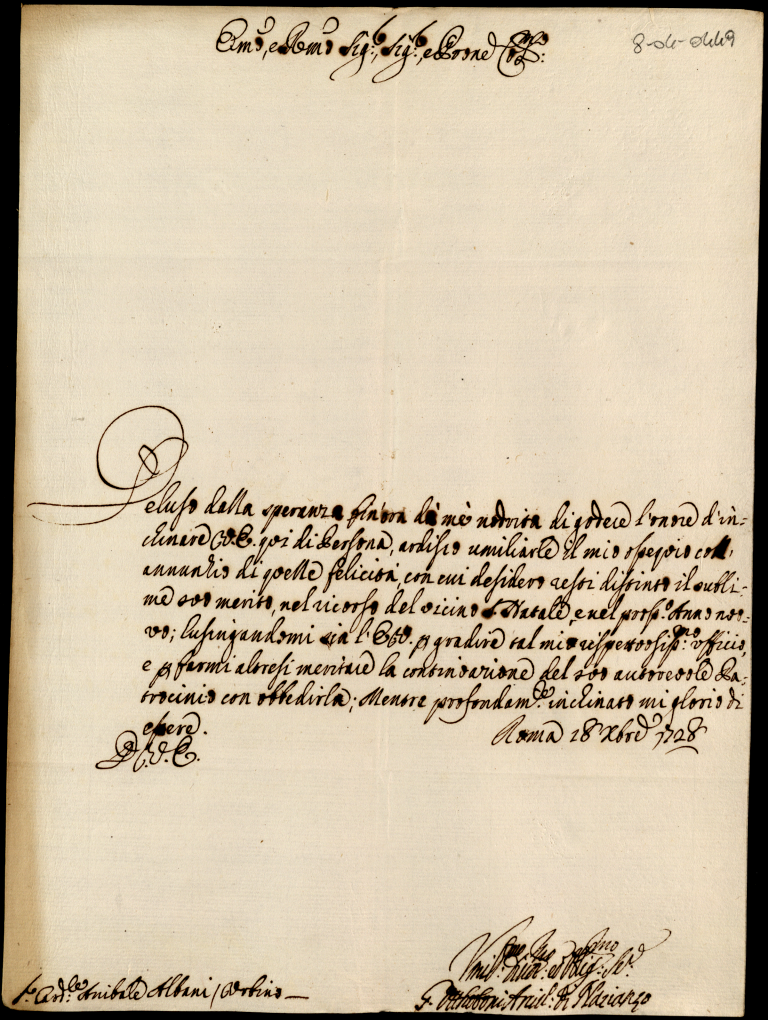 Em̃o, e Rmo Sigr, Sigr, e Prone Colmo:
8-dc-
Deluso dalla speranza finora da me nodrita di godere l'onore d'in-
chinare V.E. qui di Persona, ardisco umiliarle il mio ossequio coll'
annunzio di quelle felicità, con cui desidero resti distinto il subli-
me suo merito, nel ricorso del vicino S. Natale, e nel pross.o Anno nuo-
vo; lusingandomi sia l'E.V. p gradire tal mio rispettosiss.mo ufficio,
e p farmi altresì meritare la continuazione del suo autorevole Pa-
trocinio con obbedirla; Mentre profondam.te inclinato mi glorio di
essere.
Roma 18 Xbre 1728
D. V. E.
Umil.mo Div.mo ed Oblig.mo Se.re
F. Otthoboni Arciv.o di Nazianzo
S.r Card.le Annibale Albani / Urbino